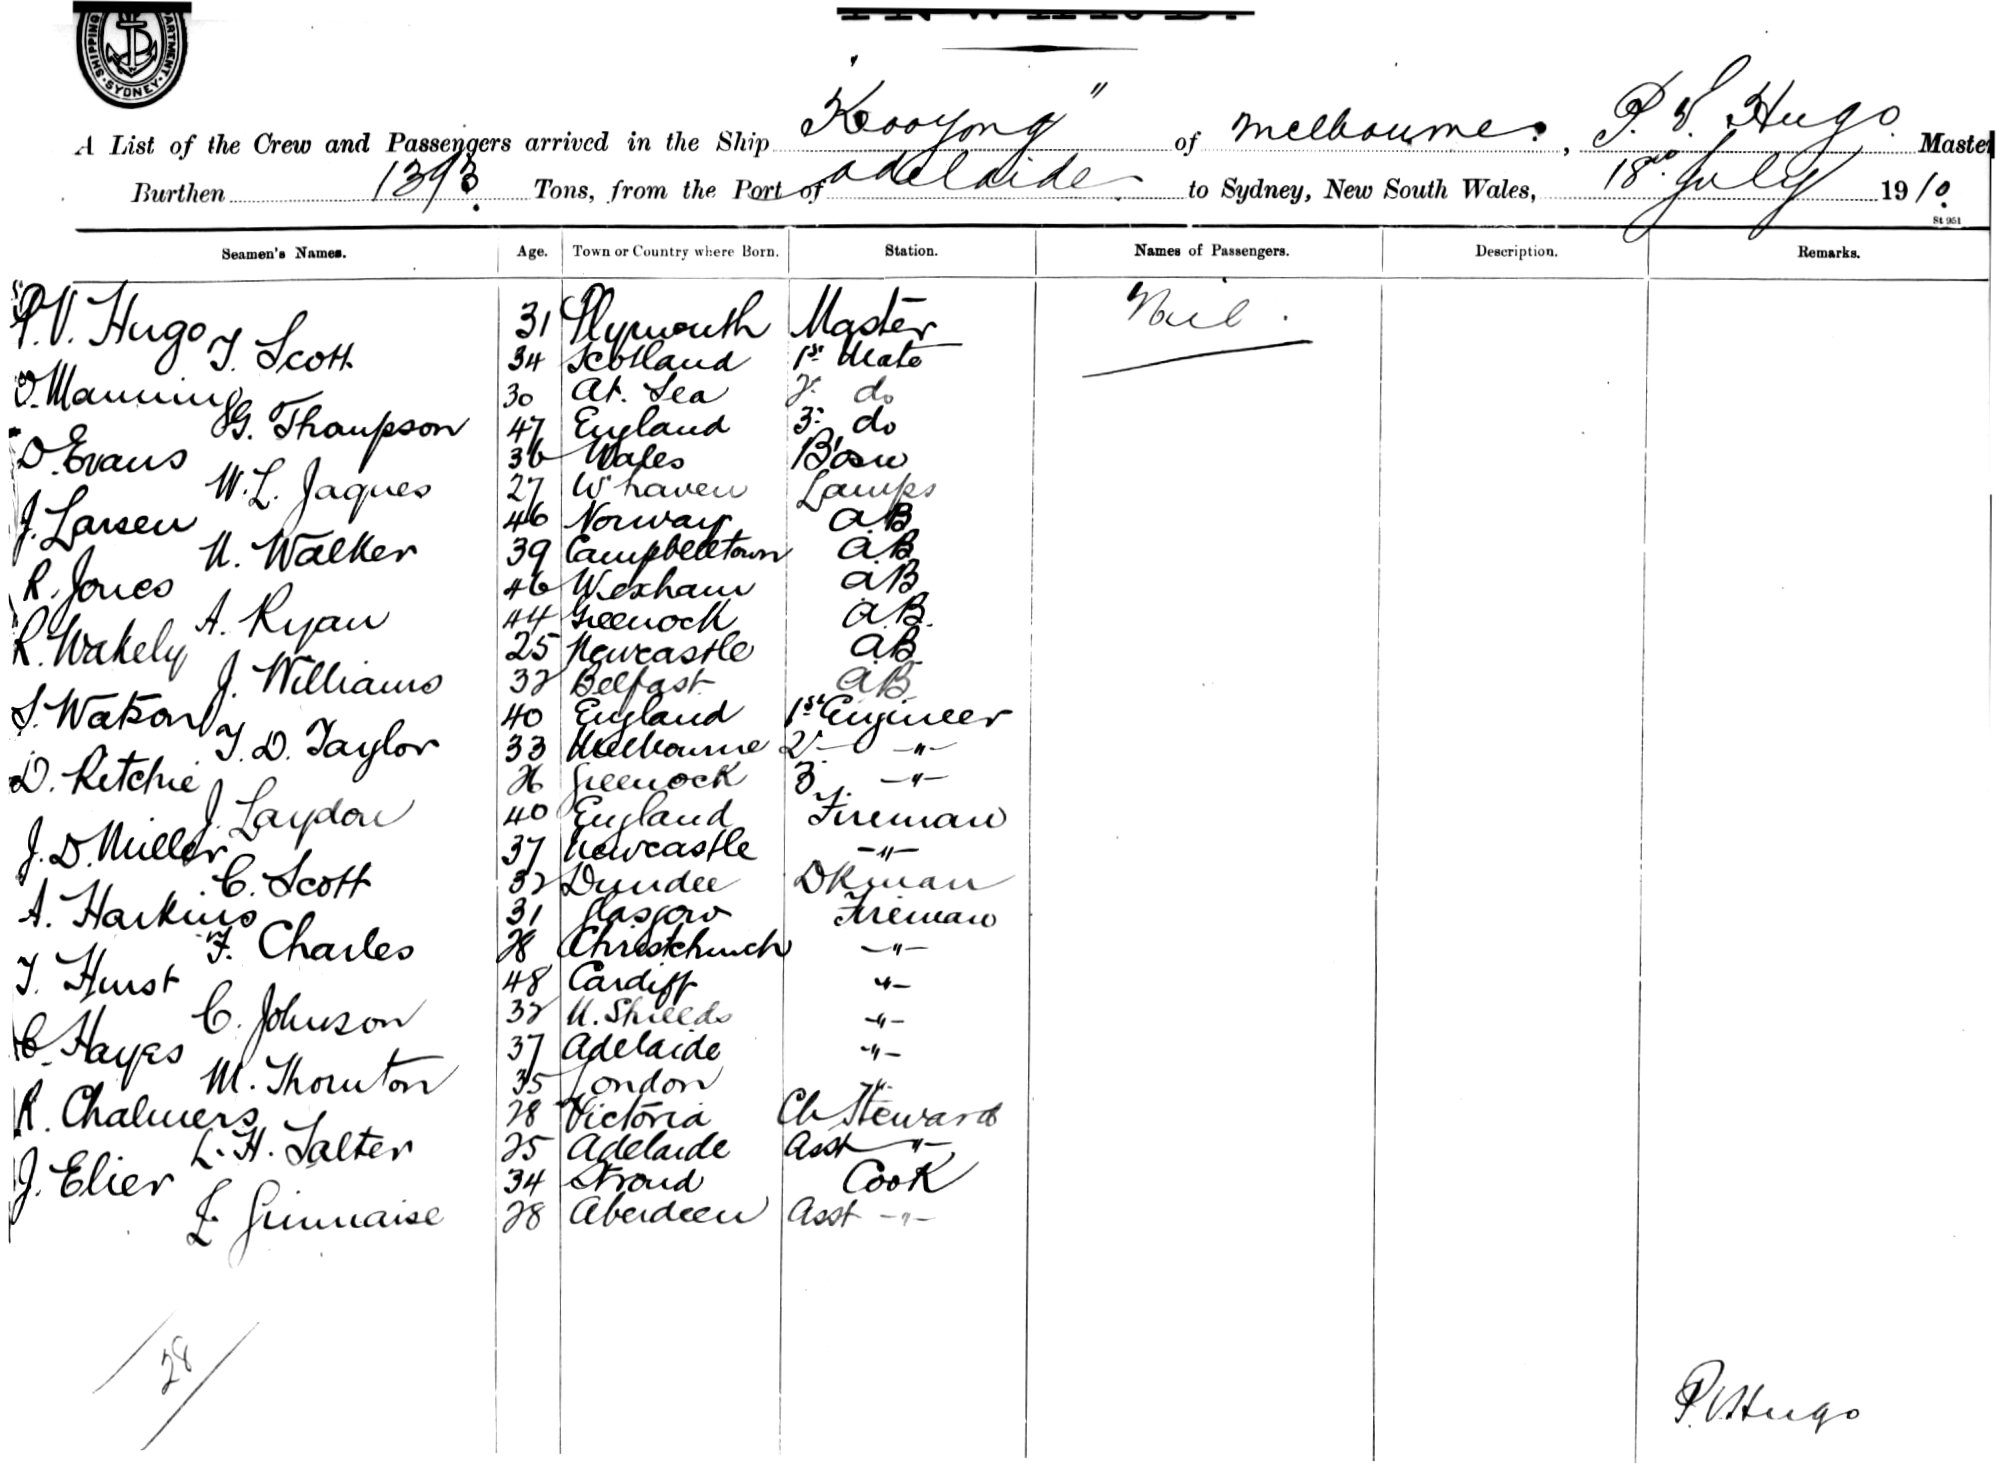 SHIPPING DEPARTMENT SYDNEY
A List of the Crew and Passengers arrived in the Ship "Kooyong" of Melbourne, P. V. Hugo Master
Burthen 1393 Tons, from the Port of Adelaide to Sydney, New South Wales, 18th July 1910
St 951
Seamen's Names. Age. Town or Country where Born. Station. Names of Passengers. Description. Remarks.
P.V. Hugo 31 Plymouth Master Nil.
T. Scott 34 Scotland 1st Mate
Manning 30 At. Sea 2 do
G. Thompson 47 England 3 do
D. Evans 36 Wales Bosn
W. L. Jaques 27 W'haven Lamps
J. Larsen 46 Norway A.B.
N. Walker 39 Campbeltown A.B.
R. Jones 46 Wexham A.B.
A. Ryan 44 Greenock A.B.
R. Wakely 25 Newcastle A.B.
J. Williams 32 Belfast A.B.
S. Watson 40 England 1st Engineer
T. D. Taylor 33 Melbourne 2 -"-
D. Ritchie 26 Greenock 3 -"-
J. Laydon 40 England Fireman
J. D. Miller 37 Newcastle -"-
C. Scott 32 Dundee Dkman
A. Harkins 31 Glasgow Fireman
F. Charles 28 Christchurch -"-
T. Hurst 48 Cardiff -"-
C. Johnson 32 N. Shields -"-
C. Hayes 37 Adelaide -"-
M. Thornton 35 London -"-
R. Chalmers 28 Victoria Ch Steward
L. H. Salter 25 Adelaide Asst -"-
J. Elier 34 Stroud Cook
Ginnaise 28 Aberdeen Asst -"-
28
P.V. Hugo